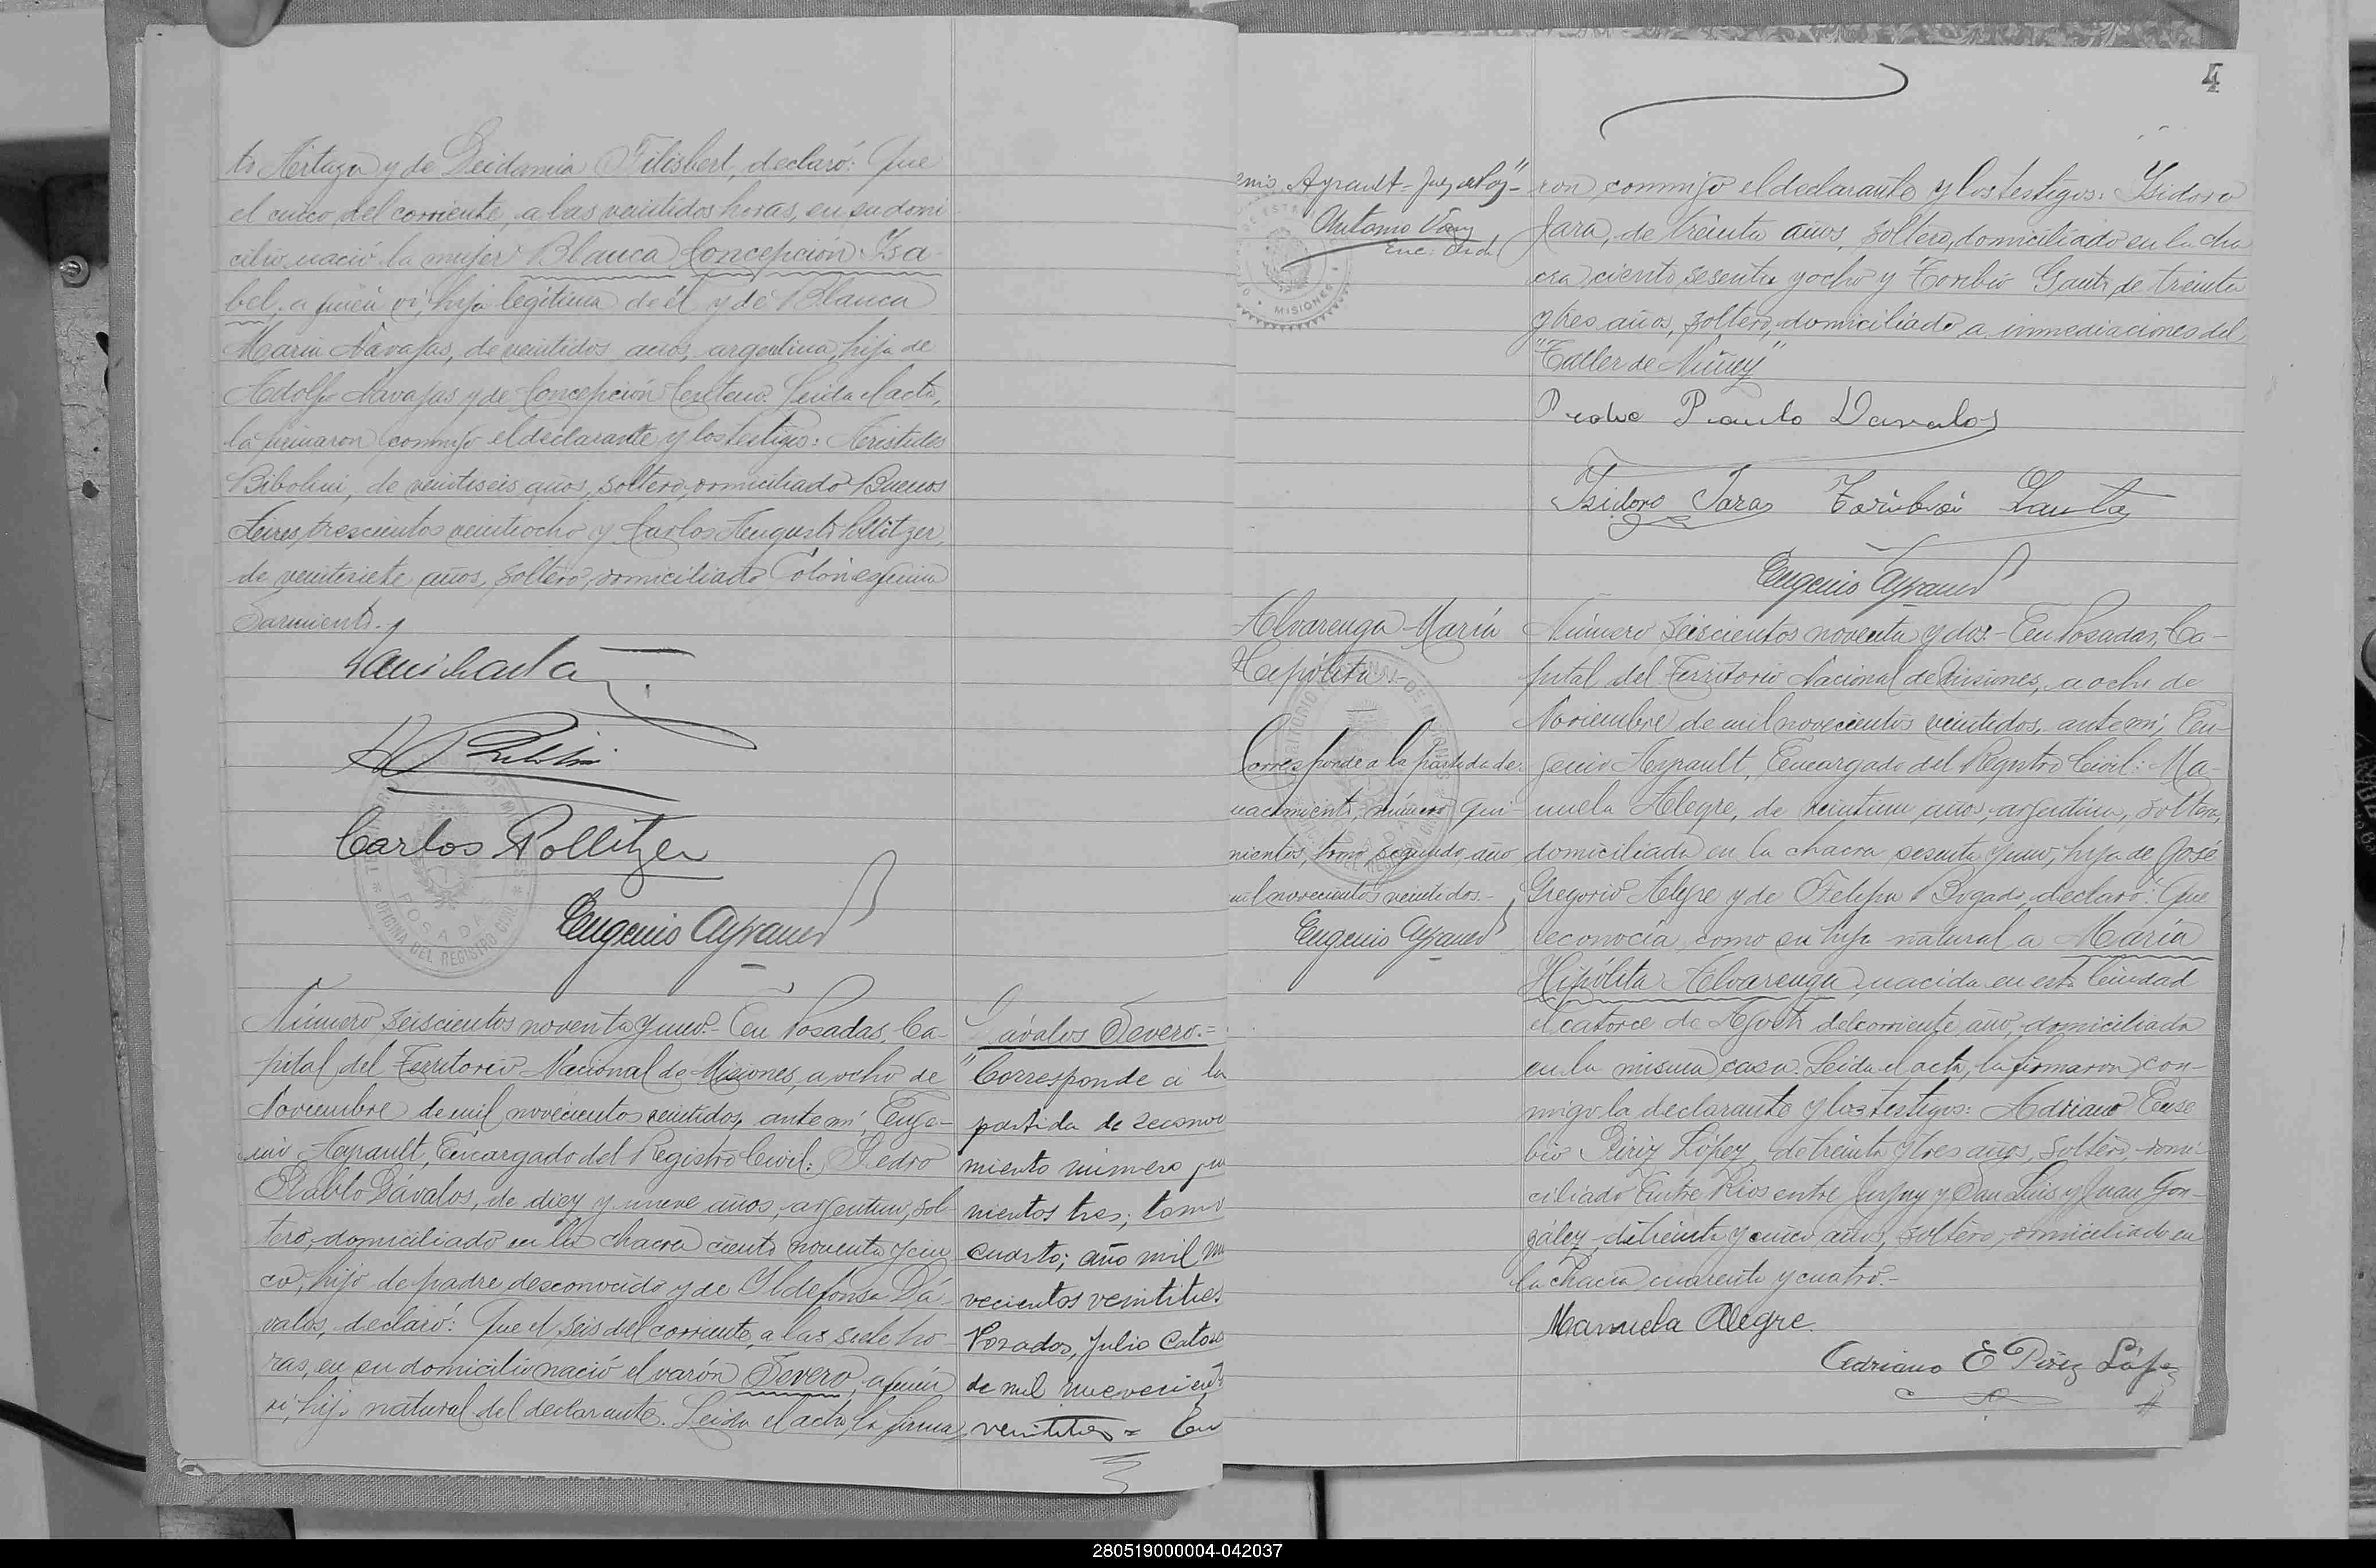 to Artaza y de Deidamia Filisbert, declaró: Que
el cinco del corriente, a las veintidos horas, en su domi
cilio nació la mujer Blanca Concepción Isa-
bel, a quien vi, hija legítima de él y de Blanca
María Navajas, de veintidos años, argentina, hija de
Adolfo Navajas y de Concepción Centeno. Leida el acta,
la firmaron conmigo el declarante y los testigos: Aristides
Bibolini, de veintiseis años, soltero, domiciliado Buenos
Aires, trescientos veintiocho y Carlos Augusto Pollitzer,
de veintisiete años, soltero, domiciliado Colón esquina
Sarmiento.-
Carlos Pollitzer
Eugenio Ayrault
Número seiscientos noventa y uno.- En Posadas, Ca-
pital del Territorio Nacional de Misiones, a ocho de
Noviembre de mil novecientos veintidos, ante mí, Euge-
nio Ayrault, Encargado del Registro Civil: Pedro
Pablo Dávalos, de diez y nueve años, argentino, sol-
tero, domiciliado en la chacra ciento noventa y cin
co, hijo de padre desconocido y de Ildefonsa Dá-
valos, declaró: Que el seis del corriente, a las siete ho-
ras, en su domicilio nació el varón Severo, a quien
vi, hijo natural del declarante. Leida el acta, la firma
Dávalos Severo.=
"Corresponde a la
partida de reconoci
miento número qui
nientos tres; tomo
cuarto; año mil no
vecientos veintitres
Posadas, Julio catorce
de mil nuevecientos
veintitres = Eu
4
OFICINA DEL REGISTRO CIVIL
POSADAS
enio Ayrault - Juez de Paz"
Antonio
MISIONES
ron conmigo el declarante y los testigos: Isidoro
Jara, de treinta años, soltero, domiciliado en la cha
cra ciento sesenta y ocho y Toribio Gauto, de treinta
y tres años, soltero, domiciliado a inmediaciones del
"Taller de Núñez"
Pedro Paulo Davalos
Isidoro Jara Toribio Gauto
Eugenio Ayrault
Alvarenga María
Hipólita.-
Corresponde a la partida de
nacimiento, número qui-
nientos, tomo segundo, año
mil novecientos veintidos.-
Eugenio Ayrault
Número seiscientos noventa y dos.- En Posadas, Ca-
pital del Territorio Nacional de Misiones, a ocho de
Noviembre de mil novecientos veintidos, ante mí, Eu-
genio Ayrault, Encargado del Registro Civil: Ma-
nuela Alegre, de veintiun años, argentina, soltera,
domiciliada en la chacra sesenta y uno, hija de José
Gregorio Alegre y de Felipa Bogado, declaró: Que
reconocía como su hija natural a María
Hipólita Alvarenga, nacida en esta Ciudad
el catorce de Agosto del corriente año, domiciliada
en la misma casa. Leida el acta, la firmaron con-
migo la declarante y los testigos: Adriano Euse
bio Piriz López, de treinta y tres años, soltero, domi-
ciliado Entre Rios entre Jujuy y San Luis y Juan Gon-
zález, de treinta y cinco años, soltero, domiciliado en
la chacra cuarenta y cuatro.-
Manuela Alegre.
Adriano E Piriz López
280519000004-042037